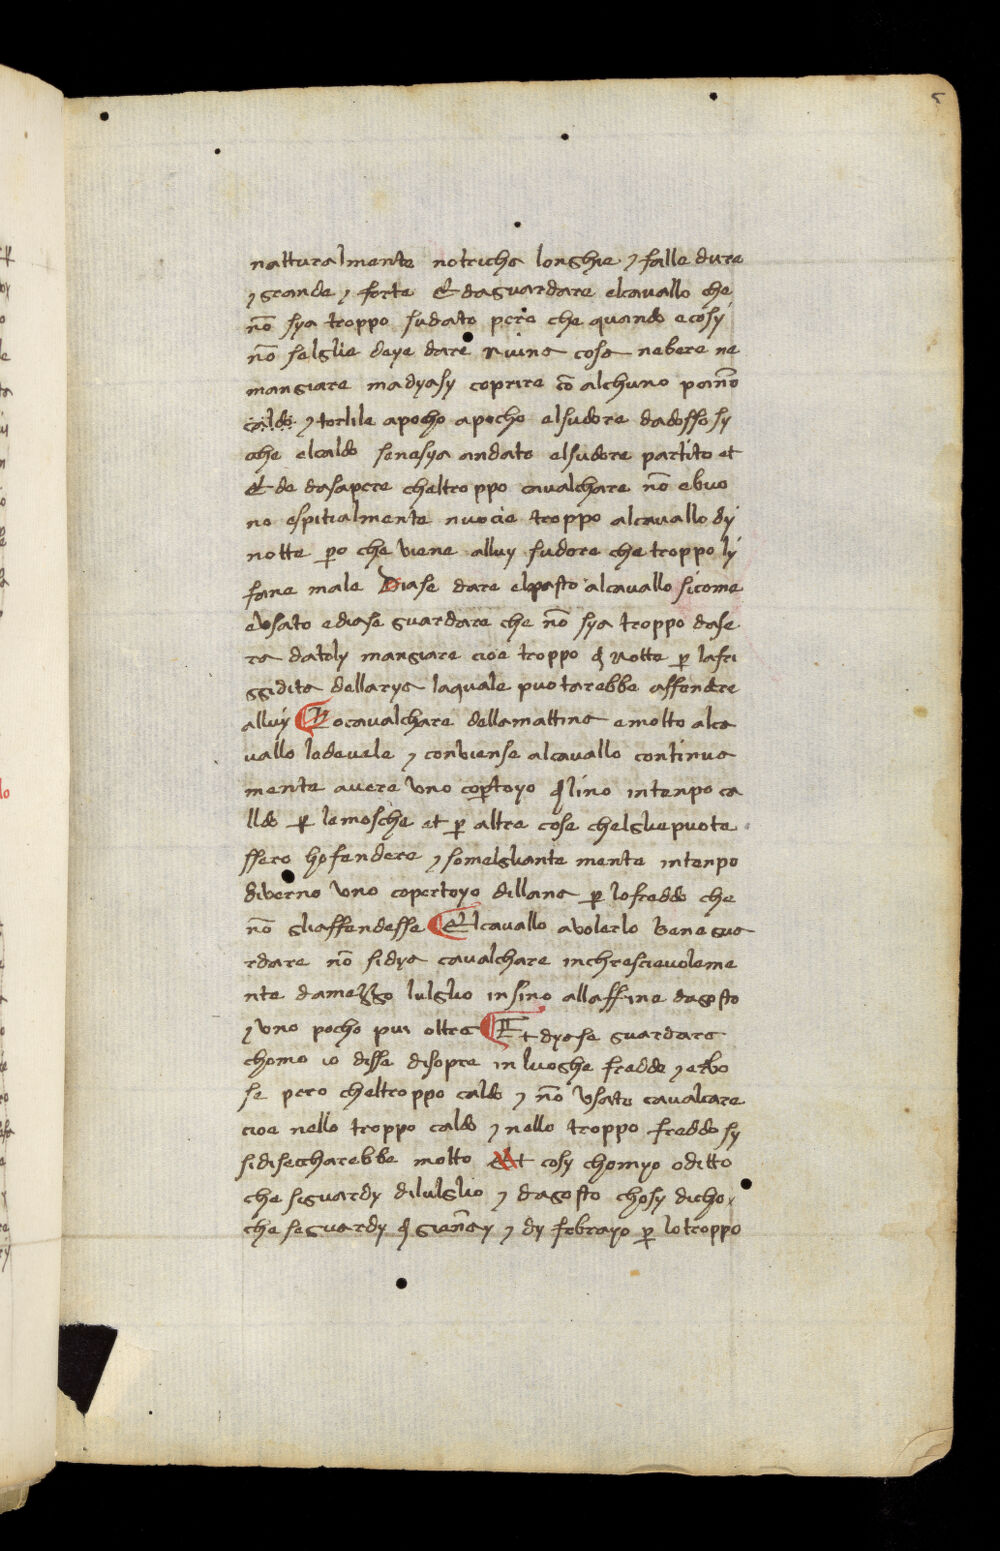 5
natturalmente notricha longhie ⁊ falle dure
⁊ grande ⁊ forte Et daguardare elcavallo che
nō sya troppo sudato pero che quando ecosy
nō selglie deye dare niuna cosa nebere ne
mangiare madyasy coprire cō alchuno panno
caldo ⁊ torlile apocho apocho elsudore dadosso sy
che elcaldo senesya andato elsudore partito et
Et de dasapere cheltroppo cavalchare nō ebuo
no espitialmente nuocie troppo alcavallo dy
notte ꝑo che viene alluy sudore che troppo ly
fane male Diase dare elpasto alcavallo sicome
eusato ediase guardare che nō sya troppo dase
ra datoly mangiare cioe troppo đ notte ꝑ lafri
ggidita dellarya laquale puotarebbe affendere
alluy Locavalchare dellamattina emolto alca
vallo lodevele ⁊ conviense alcavallo continua
mente avere uno coꝑtoyo đ lino intenpo ca
lldo ꝑ lemosche et ꝑ altre cose chelglie puote
ssero hofendere ⁊ somelgliante mente intenpo
diverno uno copertoyo dillana ꝑ lofreddo che
nō gliaffendesse Elcavallo avolerlo bene gua
rdare nō sidya cavalchare inchrescievoleme
nte damezzo lulglio insino allaffine dagosto
⁊ uno pocho pui oltra Et dyase guardare
chomo io disse disopra in luoghe fredde ⁊ erbo
se pero cheltroppo caldo ⁊ nō usato cavalcare
cioe nello troppo caldo ⁊ nello troppo freddo sy
sidisecharebbe molto Et cosy chomyo oditto
che siguardy dilulglio ⁊ dagosto chosy dicho
che seguardy đ giennay ⁊ dy febrayo ꝑ lotroppo